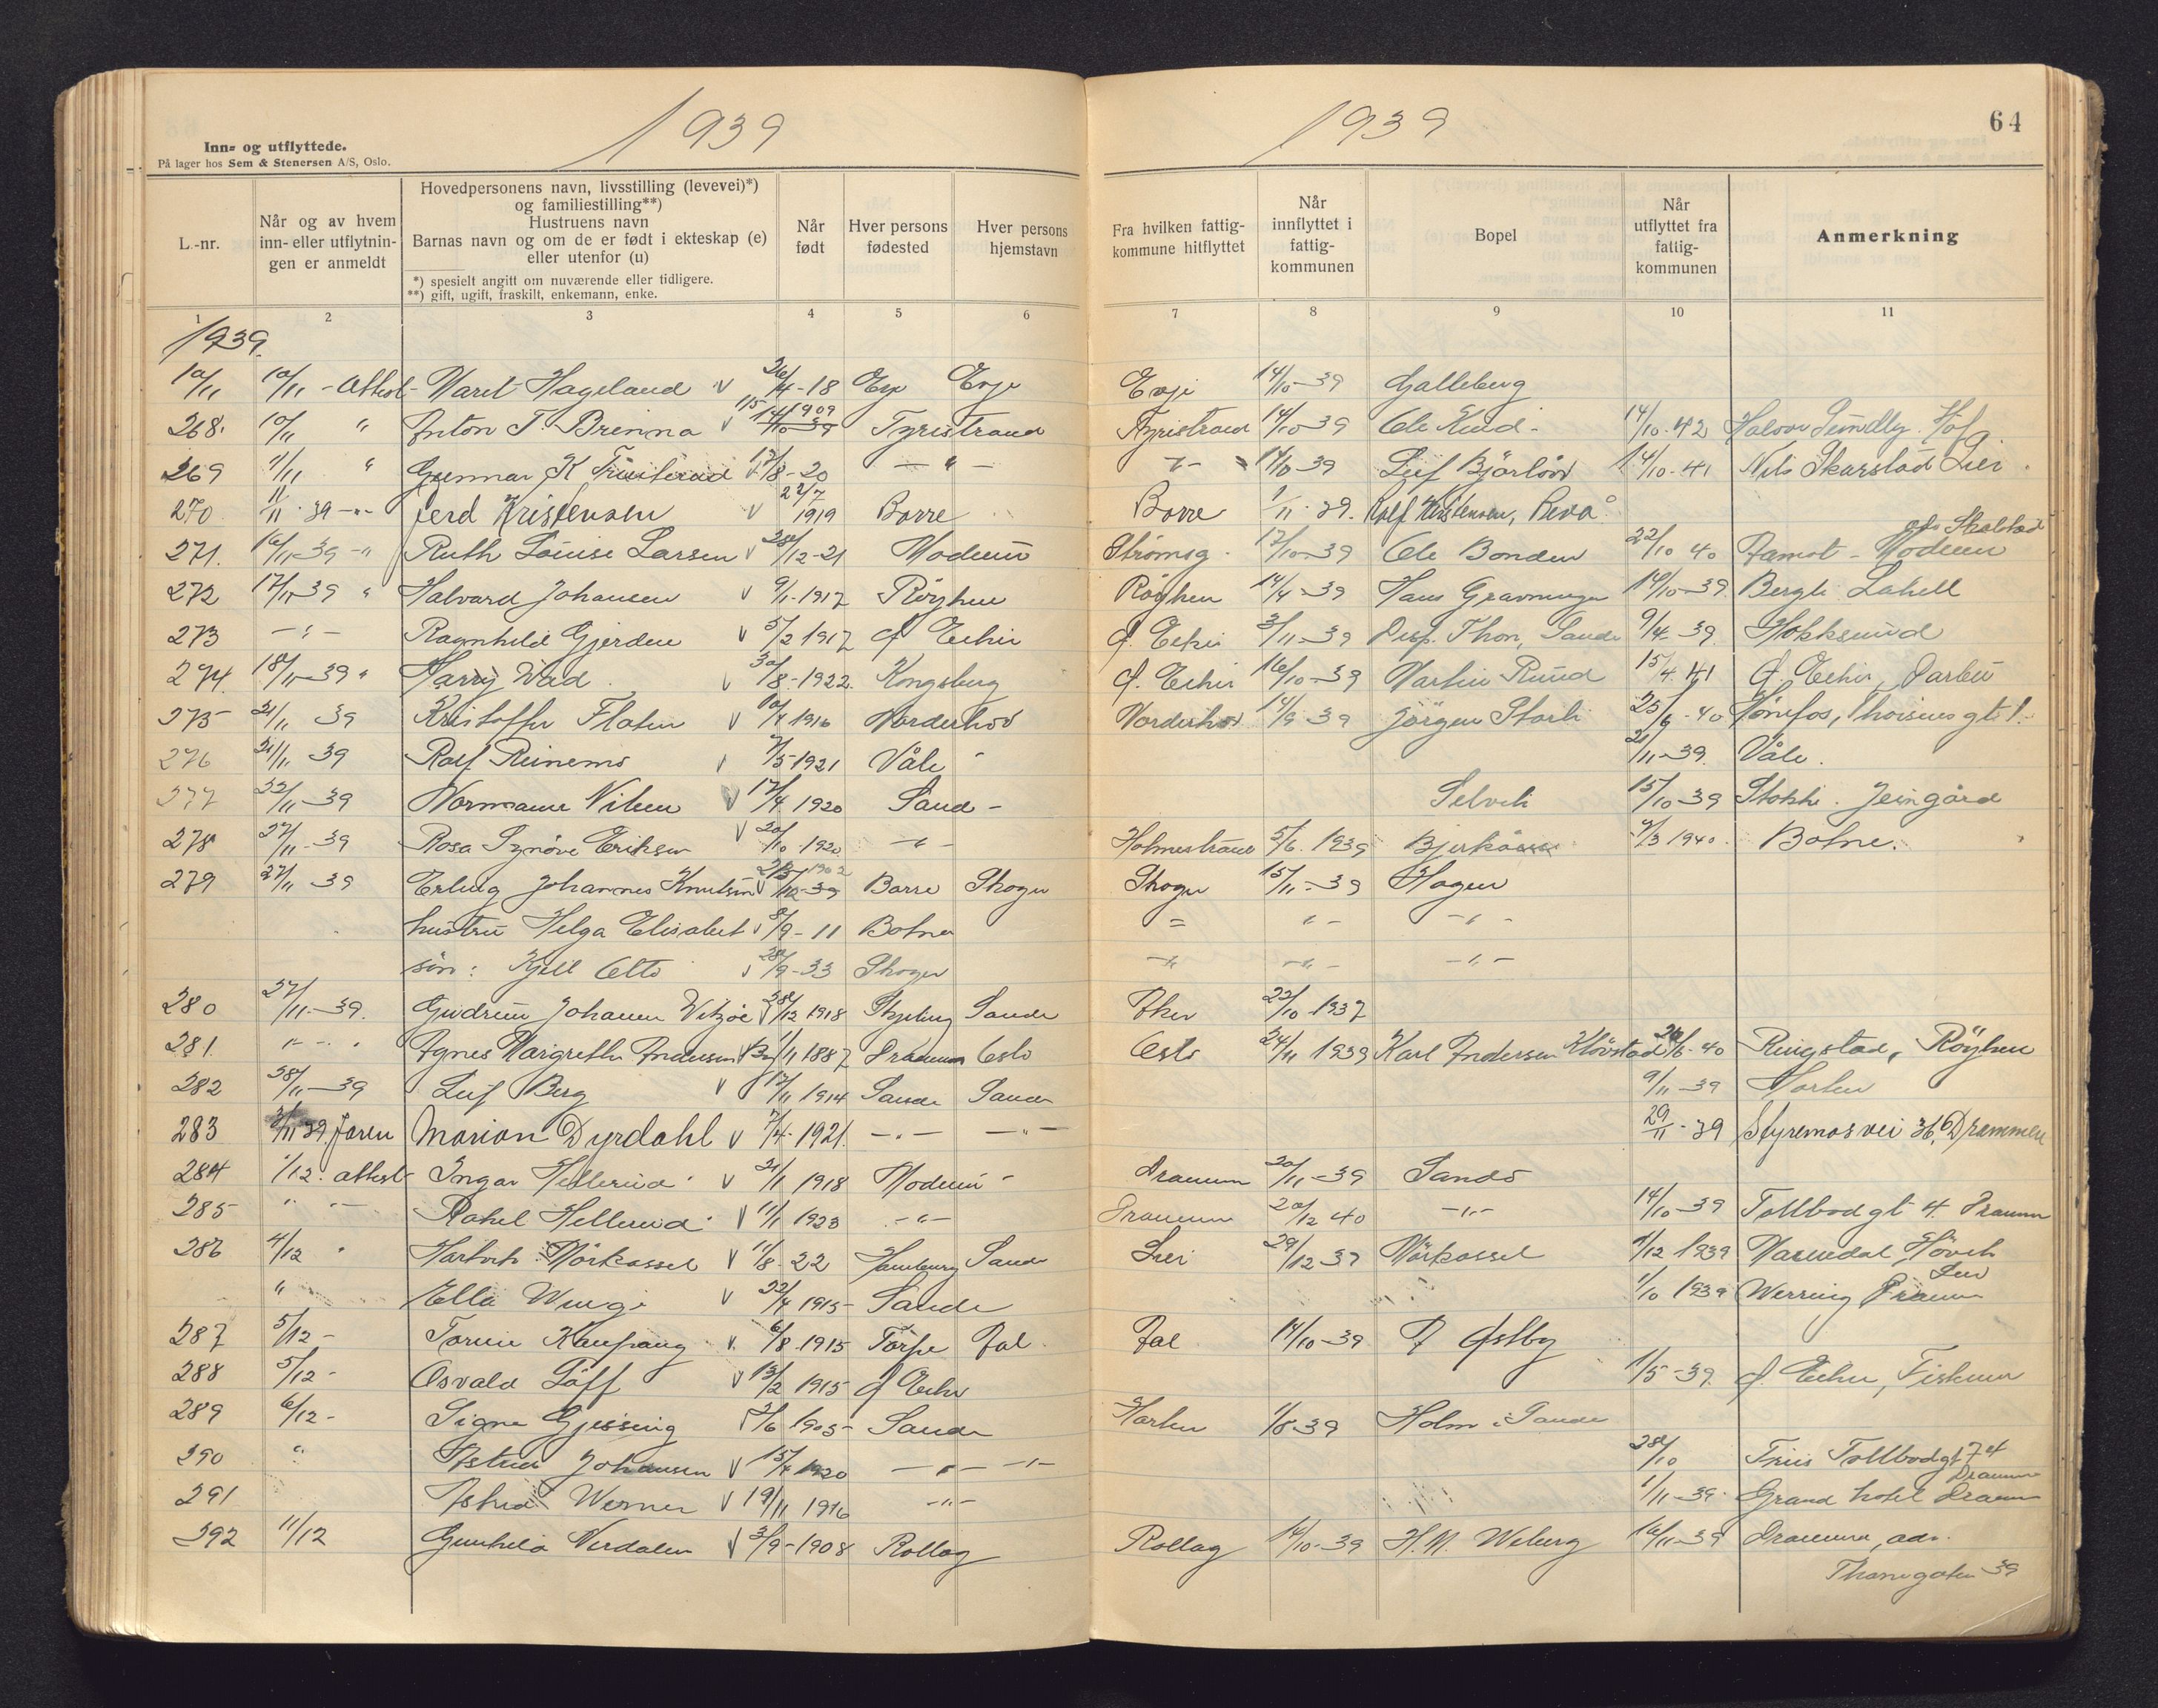 1939
Inn- og utflyttede.
På lager hos Sem & Stenersen A/S, Oslo.
L.-nr.
Når og av hvem inn- eller utflytningen er anmeldt
Hovedpersonens navn, livsstilling (levevei)*)
og familiestilling**)
Hustruens navn
Barnas navn og om de er født i ekteskap (e)
eller utenfor (u)
*) spesielt angitt om nuværende eller tidligere.
**) gift, ugift, fraskilt, enkemann, enke.
Når født
Hver persons fødested
Hver persons hjemstavn
1 2 3 4 5 6
1939
64
Fra hvilken fattigkommune hitflyttet
Når innflyttet i fattigkommunen
Bopel
Når utflyttet fra fattigkommunen
Anmerkning
7 8 9 10 11
1939.
10/11 10/11 - Attest Marit Hageland v 26/4-18 Evje Evje Evje 14/10-39 Galleberg
268. 10/11 " Anton T. Brenna v 1909 Tyristrand Tyristrand 14/10 39 Ole Ruud 14/10-42
269 11/11 " Gunnar K v /8-20 - " - 14/10 39 Leif 14/10-41 Nils Skarstad Lier.
270 11/11-39 -"- Gerd Kristensen v 27/7 1919 Borre Borre 1/11-39. Rolf Kristensen, Revå
271. 16/11-39 -" Ruth Louise Larsen v 28/12-21 Modum Strømsg. 17/10-39 Ole Bonden 22/10 40 Åamot - Modum
272 17/11-39 " Halvard Johansen v 9/1-1917 Röyken Röyken 14/4-39 Hans Gravningen 14/10-39 Bergli Lahell
273 - " - Ragnhild Gjerden v 5/2 1917 Ø. Eeker Ø. Eeker 3/11-39 Disp. Thon, Sande 9/4. 39. Hokksund
274. 18/11-39 " Harry Wad. v 30/8-1922. Kongsberg Ø. Eeker 16/10-39 Martin Ruud 15/4. 41 Ø. Eeker, Darbu
275 21/11 39 Kristoffer Flaten v 10/4 1916 Norderhov Norderhov 14/9-39 Jörgen Storli 25/6-40 Hönefos,
276 21/11 39 Rolf Reinemo v 7/5-1921 Våle 21/11-39. Våle.
277 22/11-39 Normann Nilsen v 17/4 1920 Sand - Selvik 15/10 39 Stokke.
278 27/11-39 Rosa Synöve Eriksen v 20/10-1920 - " - Holmestrand 5/6. 1939 9/3 1940. Botne.
279 27/11 39 Erling Johannes Knutsen v 1902 Borre Skoger Skoger 15/11-39 Hagen
hustru Helga Elisabet v 8/9-11 Botne = " - - " -
sön: Kjell Otto v 28/9-33 Skoger - " - - " - - " -
280 27/11-39. Gudrun Johanne v 28/12 1918 Sande Aker 22/10-1937
281. " - " Agnes Margrethe Andersen 1/11 1887 Drammen Oslo Oslo 24/11 1939 Karl Andersen Klövstad 26/6-40 Ringstad, Röyken
282 28/11-39 Leif Berg v 17/11 1914 Sande Sande 9/11-39 Horten
283 /11 39. Faren Marion Dyrdahl v 7/4-1921. - " - - " - 29/11-39 Styremosvei 36, Drammen
284 1/12. attest Ingar Hellerud v 21/1 1918 Modum - Drammen 20/11-39 Sandö
285 " " - Rakel Hellerud v 11/1 1923 - " - Drammen 20/12 40 - " - 14/10-39 Tollbodgt 4. Drammen
286 4/12 " Mörkassel v 11/8-22 Hamburg Sande Lier 29/12-37 Mörkassel 1/12 1939 Hövik Lier
" Ella Winge v 22/4 1915- Sande 1/10 1939 Werring Dramm
287 5/12- v. 6/8-1915 Torpe Aal Aal 14/10-39 A Østby
288 5/12- Osvald Löff v 13/2 1915 Ø Eeker 1/5-39. Ø. Eeker, Fiskum
289 6/12- Signe Gjessing v /6 1905- Sande Horten 1/8-39 Holm i Sande
290 " Johansen v 15/4 1920 - " - - " - 28/10 Friis Tollbodgt 74 Drammen
291 Astrid Werner v 19/11 1916 - " - 1/11-39. Grand hotel Dramm
292 11/12 Gunhild v 3/9-1908 Rollag Rollag 14/10-39 H. M. Wiberg 16/11-39 Drammen, adr.
39